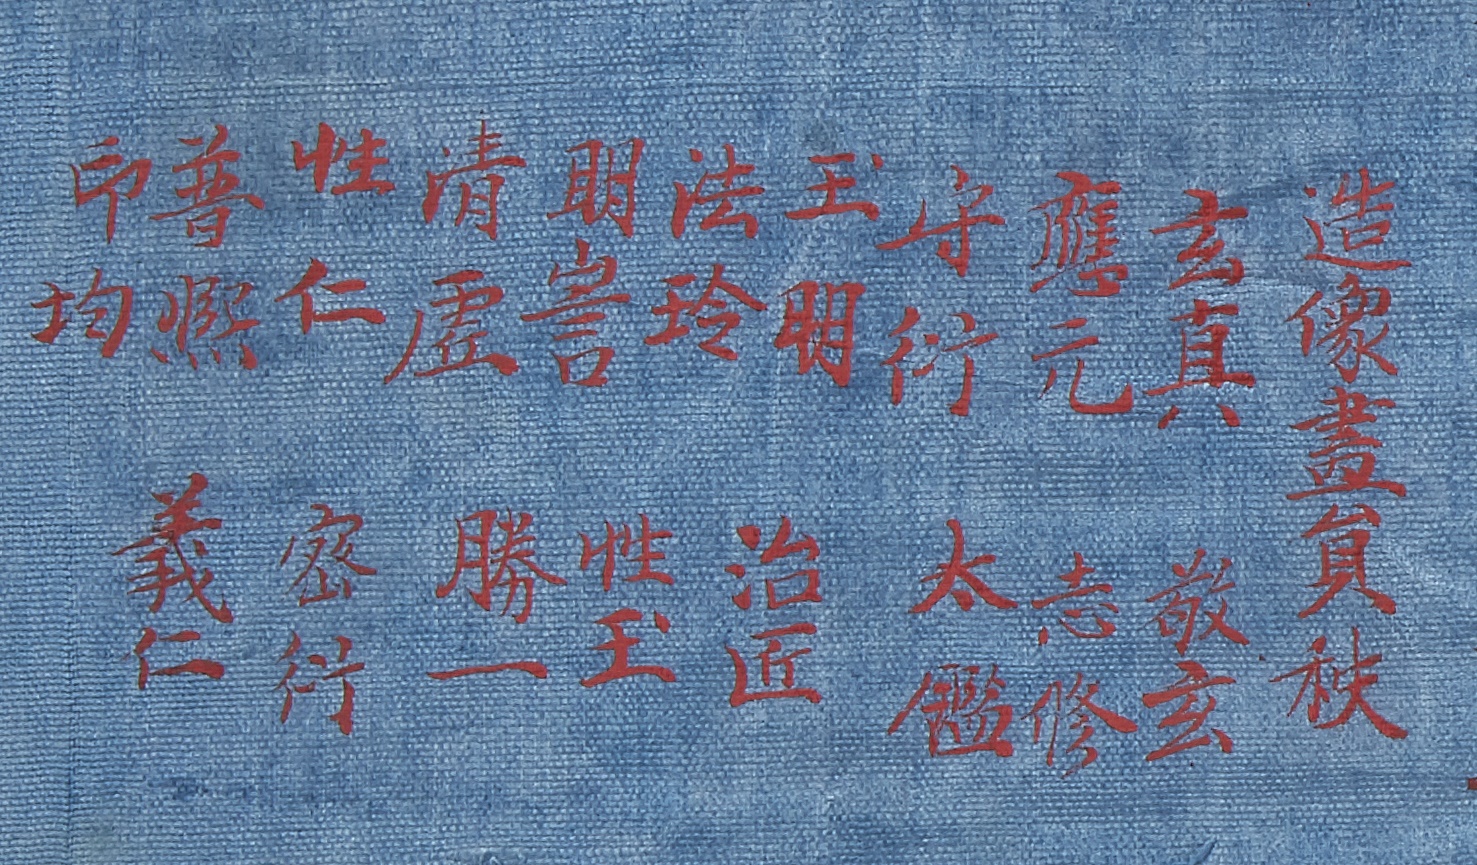 造像畫貟秩
玄真 敬玄
應元 志修
守衍 太鑑
玉明
治匠
法玲
性玉
明訔
清虛 勝一
性仁 密衍
普熈 義仁
印均